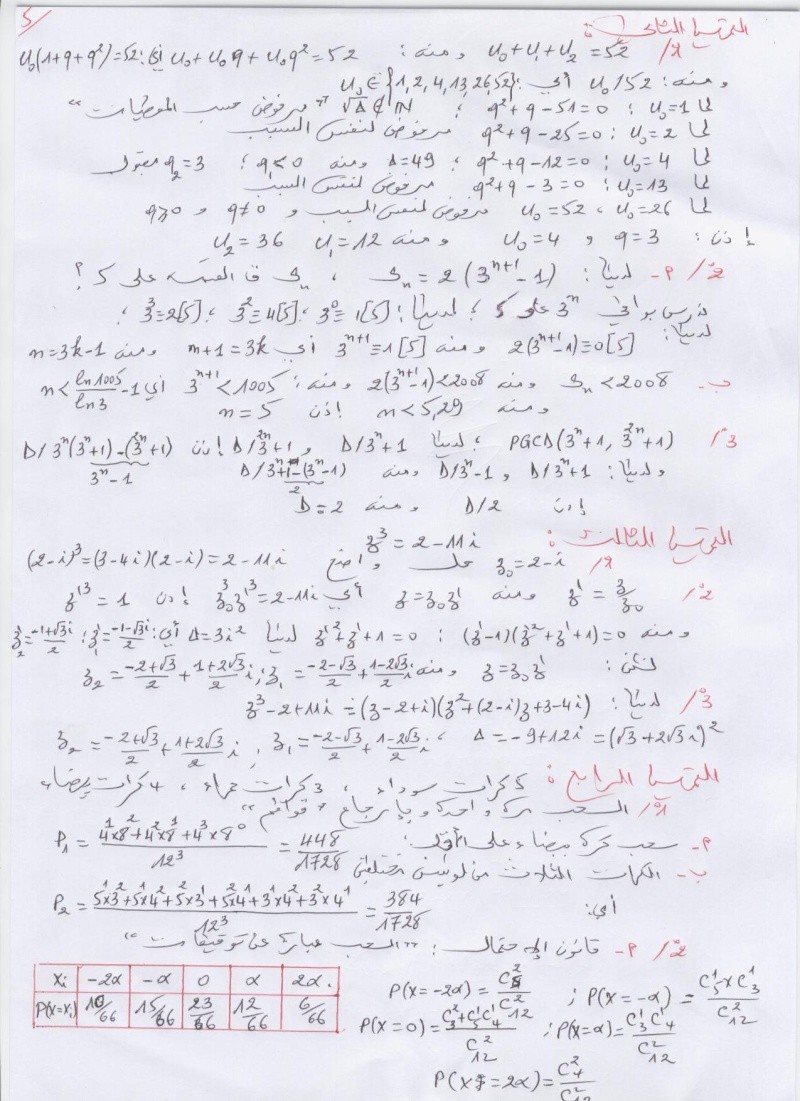 5/
التمرين الثاني:
1°/ U₀+U₁+U₂ = 52 ومنه: U₀+U₀q+U₀q² = 52 أي: U₀(1+q+q²)=52
ومنه: U₀/52 أي: U₀ ∈ {1,2,4,13,26,52}
لما U₀=1 : q²+q-51=0 ; √Δ ∉ ℕ "مرفوض حسب المعطيات"
لما U₀=2 : q²+q-25=0 مرفوض لنفس السبب
لما U₀=4 : q²+q-12=0 ; Δ=49 ومنه q₁<0 ; q₂=3 مقبول
لما U₀=13 : q²+q-3=0 مرفوض لنفس السبب
لما U₀=26 ، U₀=52 مرفوض لنفس السبب و q≠0 و q>0
إذن: q=3 و U₀=4 ومنه U₁=12 U₂=36
2°/ م- لدينا: Sₙ = 2(3ⁿ⁺¹-1) ، Sₙ ق القسمة على 5 ؟
ندرس بواقي 3ⁿ على 5 ; لدينا: 3⁰≡1[5] ; 3²≡4[5] ; 3³≡2[5] ;
لدينا: 2(3ⁿ⁺¹-1)≡0[5] ومنه 3ⁿ⁺¹≡1[5] أي n+1=3k ومنه n=3k-1
ب- Sₙ<2008 ومنه 2(3ⁿ⁺¹-1)<2008 ومنه: 3ⁿ⁺¹<1005 أي n< ln1005/ln3 -1
ومنه n<5,29 إذن n=5
3°/ PGCD(3ⁿ+1, 3²ⁿ+1) ; لدينا D/3ⁿ+1 و D/3²ⁿ+1 إذن D/3ⁿ(3ⁿ+1)-(3²ⁿ+1)
3ⁿ-1
ولدينا: D/3ⁿ+1 و D/3ⁿ-1 ومنه D/3ⁿ+1-(3ⁿ-1)
2
إذن D/2 ومنه D=2
التمرين الثالث:
z³ = 2-11i
1°/ z₀=2-i حل واضح (2-i)³=(3-4i)(2-i)=2-11i
2°/ z' = z/z₀ ومنه z=z₀z' أي z₀³z'³=2-11i إذن z'³=1
ومنه (z'-1)(z'²+z'+1)=0 : z'²+z'+1=0 لدينا Δ=3i² أي: z'₁=(-1-√3i)/2 ; z'₂=(-1+√3i)/2
لكن: z=z₀z' ومنه z₁=(-2-√3)/2+(1-2√3)/2 i ; z₂=(-2+√3)/2+(1+2√3)/2 i
3°/ لدينا: z³-2+11i=(z-2+i)(z²+(2-i)z+3-4i)
Δ=-9+12i=(√3+2√3i)² ، z₁=(-2-√3)/2+(1-2√3)/2 i , z₂=(-2+√3)/2+(1+2√3)/2 i
التمرين الرابع:
5 كرات سوداء ، 3 كرات حمراء ، 4 كرات بيضاء
1°/ السحب مرة واحدة وبإرجاع "قوائم"
م- سحب كرة بيضاء على الأقل: P₁ = (4¹×8²+4²×8¹+4³×8⁰)/12³ = 448/1728
ب- الكرات الثلاث من لونين مختلفين
أي: P₂ = (5¹×3²+5¹×4²+5²×3¹+5²×4¹+3¹×4²+3²×4¹)/12³ = 384/1728
2°/ م- قانون الإحتمال: "السحب عبارة عن توفيقات"
Xi -2α -α 0 α 2α
P(X=Xi) 10/66 15/66 23/66 12/66 6/66
P(X=-2α)=C²₅/C²₁₂ ; P(X=-α)=C¹₅×C¹₃/C²₁₂
P(X=0)=(C²₃+C¹₅C¹₄)/C²₁₂ ; P(X=α)=C¹₃C¹₄/C²₁₂
P(X=2α)=C²₄/C²₁₂